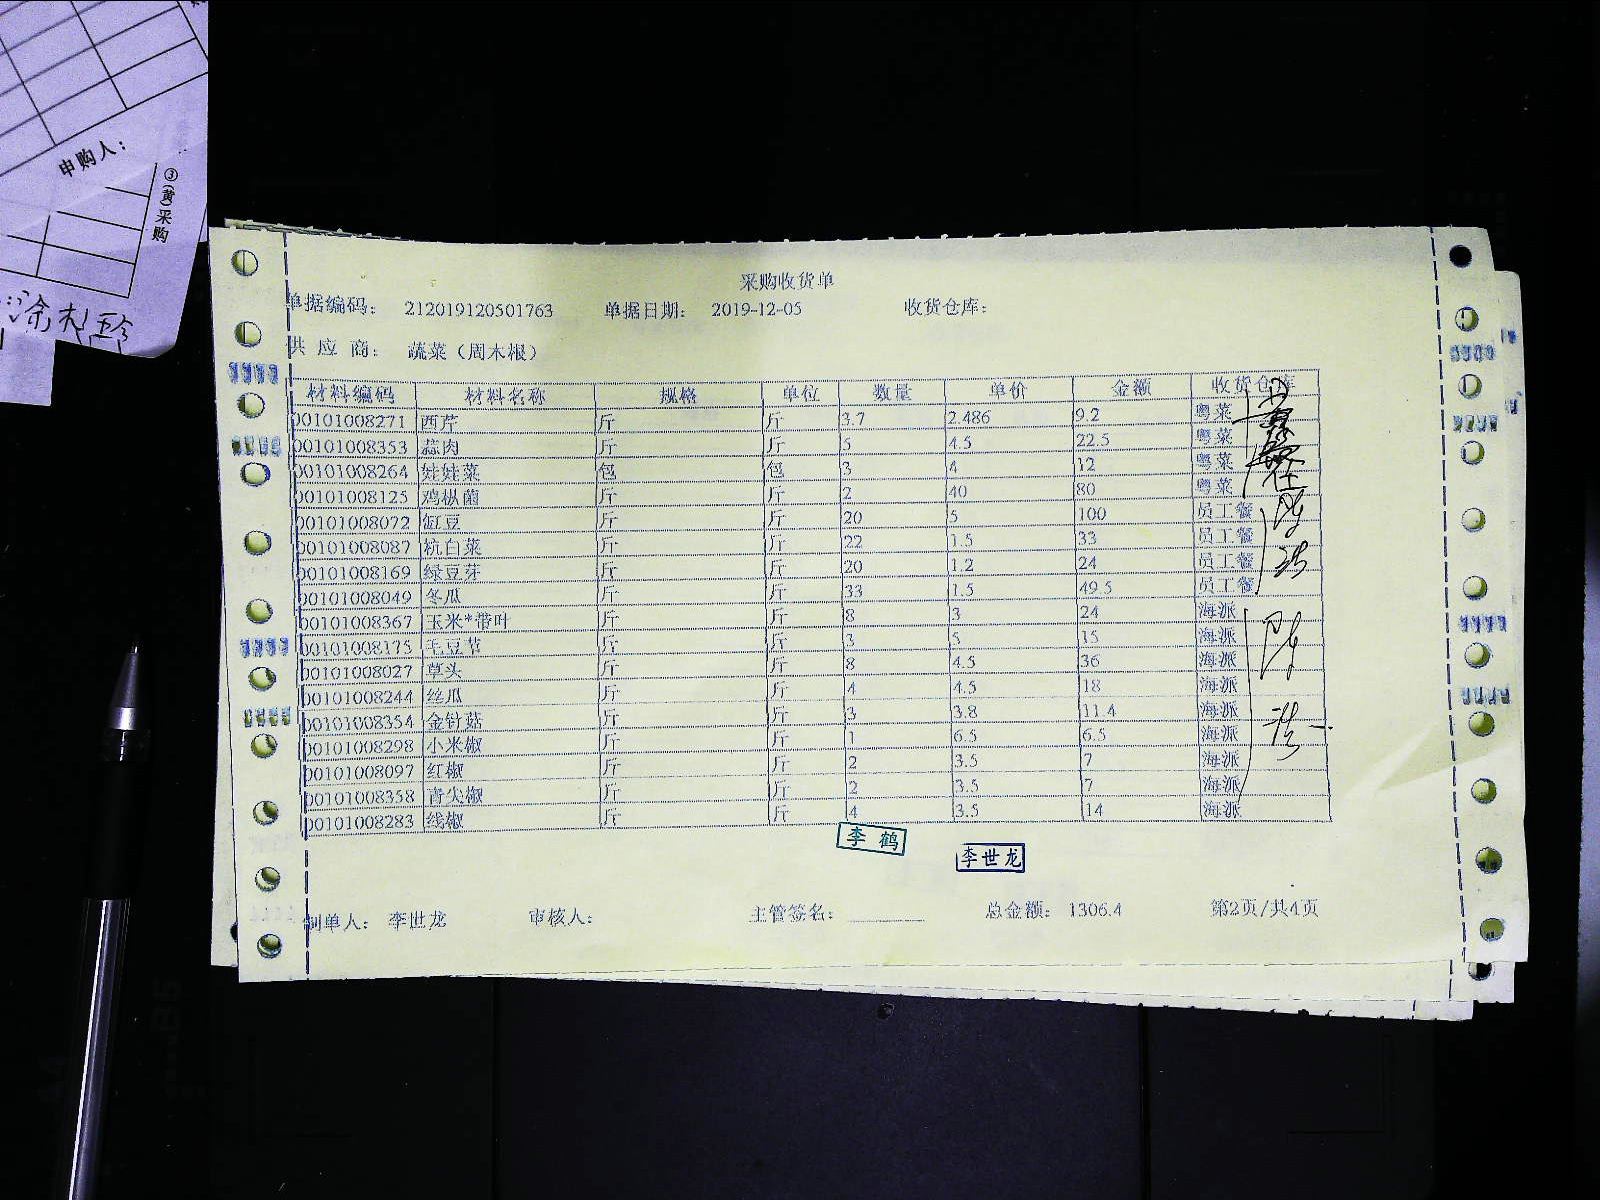 申购人：
③(黄)采购
采购收货单
单据编码： 212019120501763 单据日期： 2019-12-05 收货仓库：
供 应 商： 蔬菜（周木根）
材料编码 材料名称 规格 单位 数量 单价 金额 收货仓库
00101008271 西芹 斤 斤 3.7 2.486 9.2 粤菜
00101008353 蒜肉 斤 斤 5 4.5 22.5 粤菜
00101008264 娃娃菜 包 包 3 4 12 粤菜
00101008125 鸡枞菌 斤 斤 2 40 80 粤菜
00101008072 豇豆 斤 斤 20 5 100 员工餐
00101008087 杭白菜 斤 斤 22 1.5 33 员工餐
00101008169 绿豆芽 斤 斤 20 1.2 24 员工餐
00101008049 冬瓜 斤 斤 33 1.5 49.5 员工餐
00101008367 玉米*带叶 斤 斤 8 3 24 海派
00101008175 毛豆节 斤 斤 3 5 15 海派
00101008027 草头 斤 斤 8 4.5 36 海派
00101008244 丝瓜 斤 斤 4 4.5 18 海派
00101008354 金针菇 斤 斤 3 3.8 11.4 海派
00101008298 小米椒 斤 斤 1 6.5 6.5 海派
00101008097 红椒 斤 斤 2 3.5 7 海派
00101008358 青尖椒 斤 斤 2 3.5 7 海派
00101008283 线椒 斤 斤 4 3.5 14 海派
李鹤
李世龙
制单人： 李世龙 审核人： 主管签名： 总金额： 1306.4 第2页/共4页